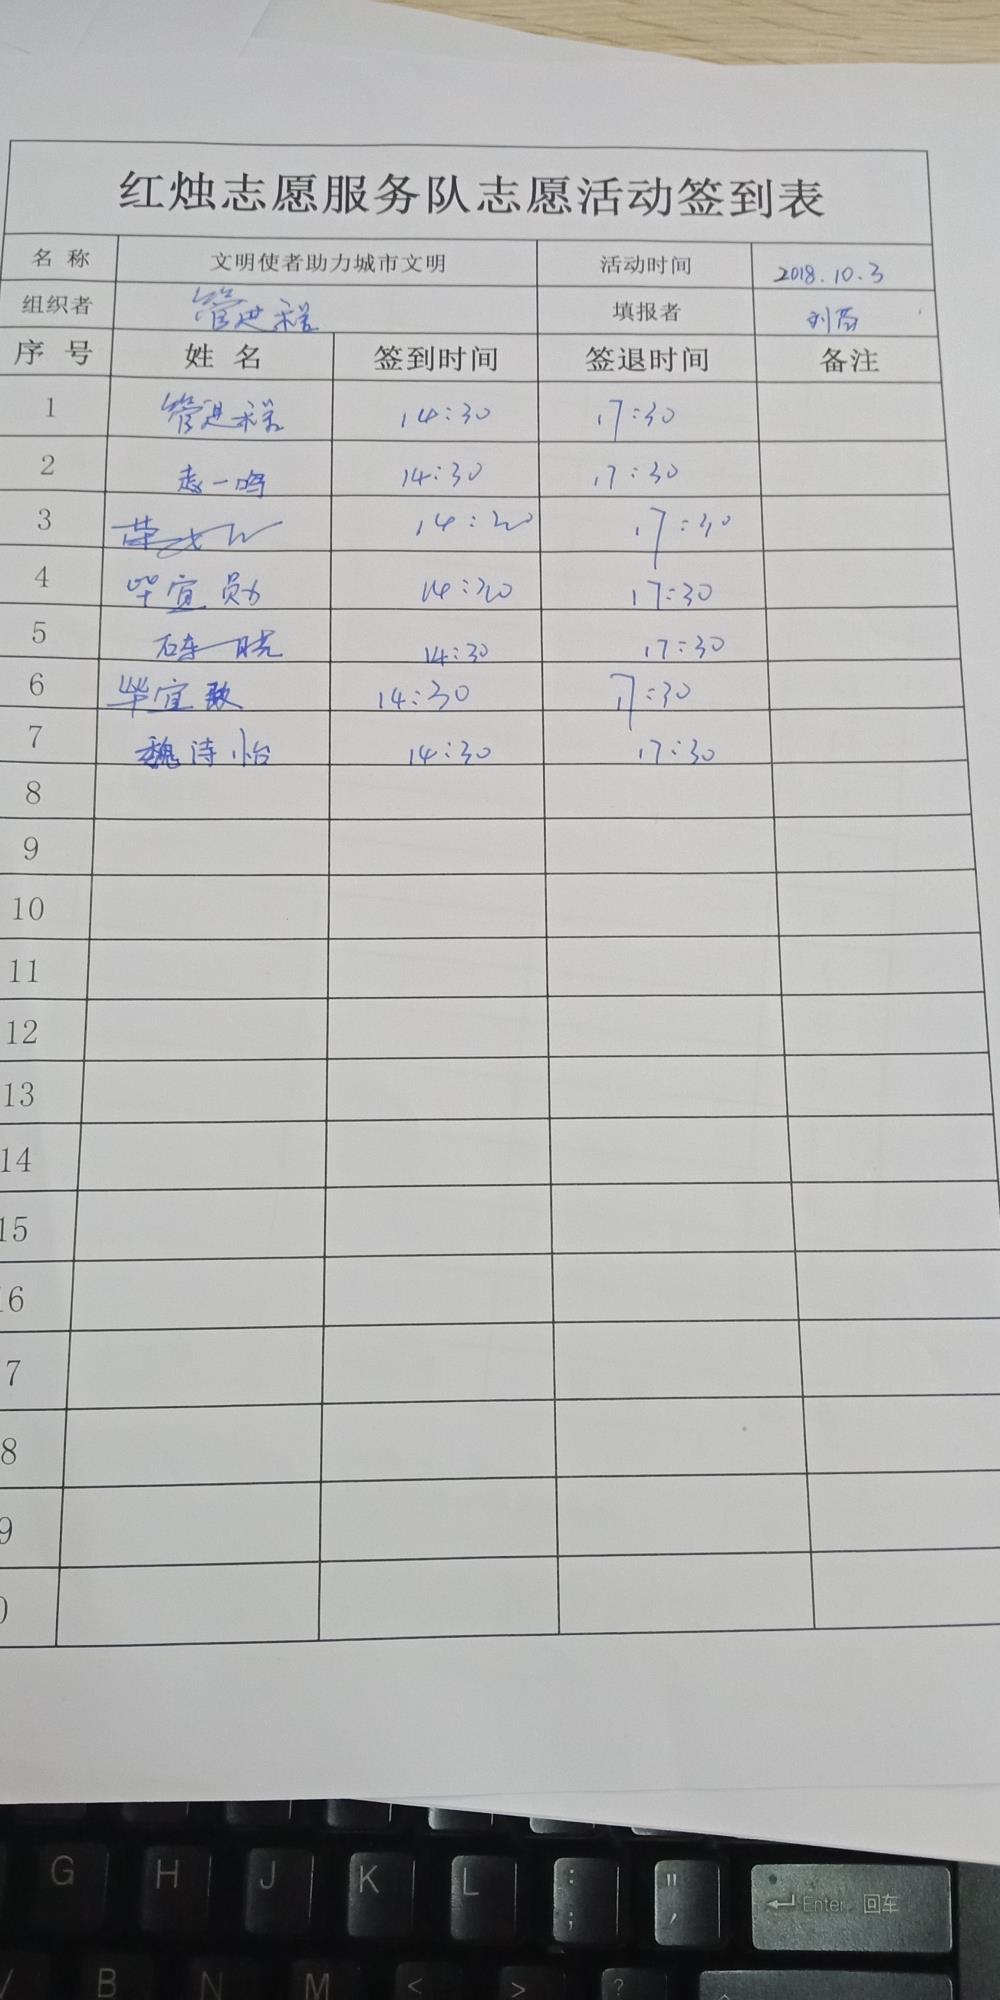 红烛志愿服务队志愿活动签到表
名 称 文明使者助力城市文明 活动时间 2018.10.3
组织者 管进程 填报者
序 号 姓 名 签到时间 签退时间 备注
1 管进程 14:30 17:30
2 一鸣 14:30 17:30
3 14:30 17:30
4 毕宜勋 14:30 17:30
5 14:30 17:30
6 毕宜歌 14:30 17:30
7 魏诗怡 14:30 17:30
8
9
10
11
12
13
14
15
16
7
8
9
0
G H J K L : ; " ' Enter 回车
V B N M < > ?